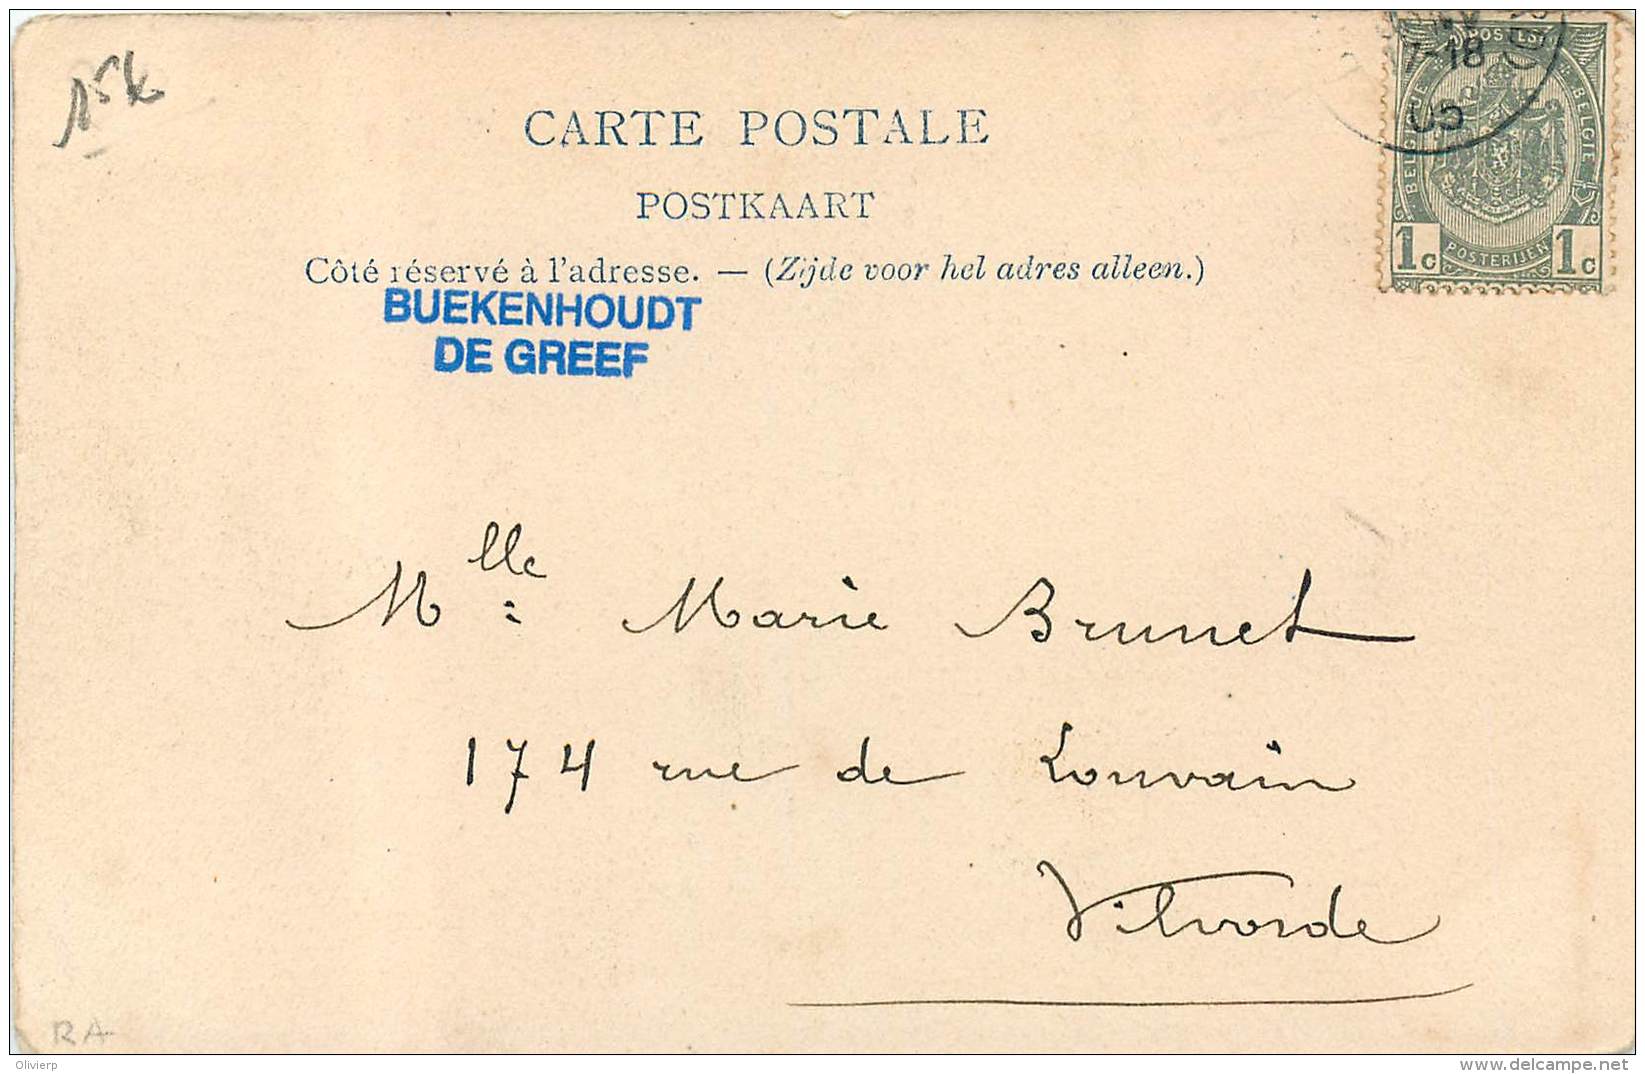 15k
CARTE POSTALE
POSTKAART
Côté réservé à l'adresse. — (Zijde voor hel adres alleen.)
BUEKENHOUDT
DE GREEF
POSTES
BELGIQUE
BELGIE
POSTERIJEN
1c 1c
-18
05
Mlle Marie Brunet
174 rue de Louvain
Vilvorde
RA
Olivierp
www.delcampe.net